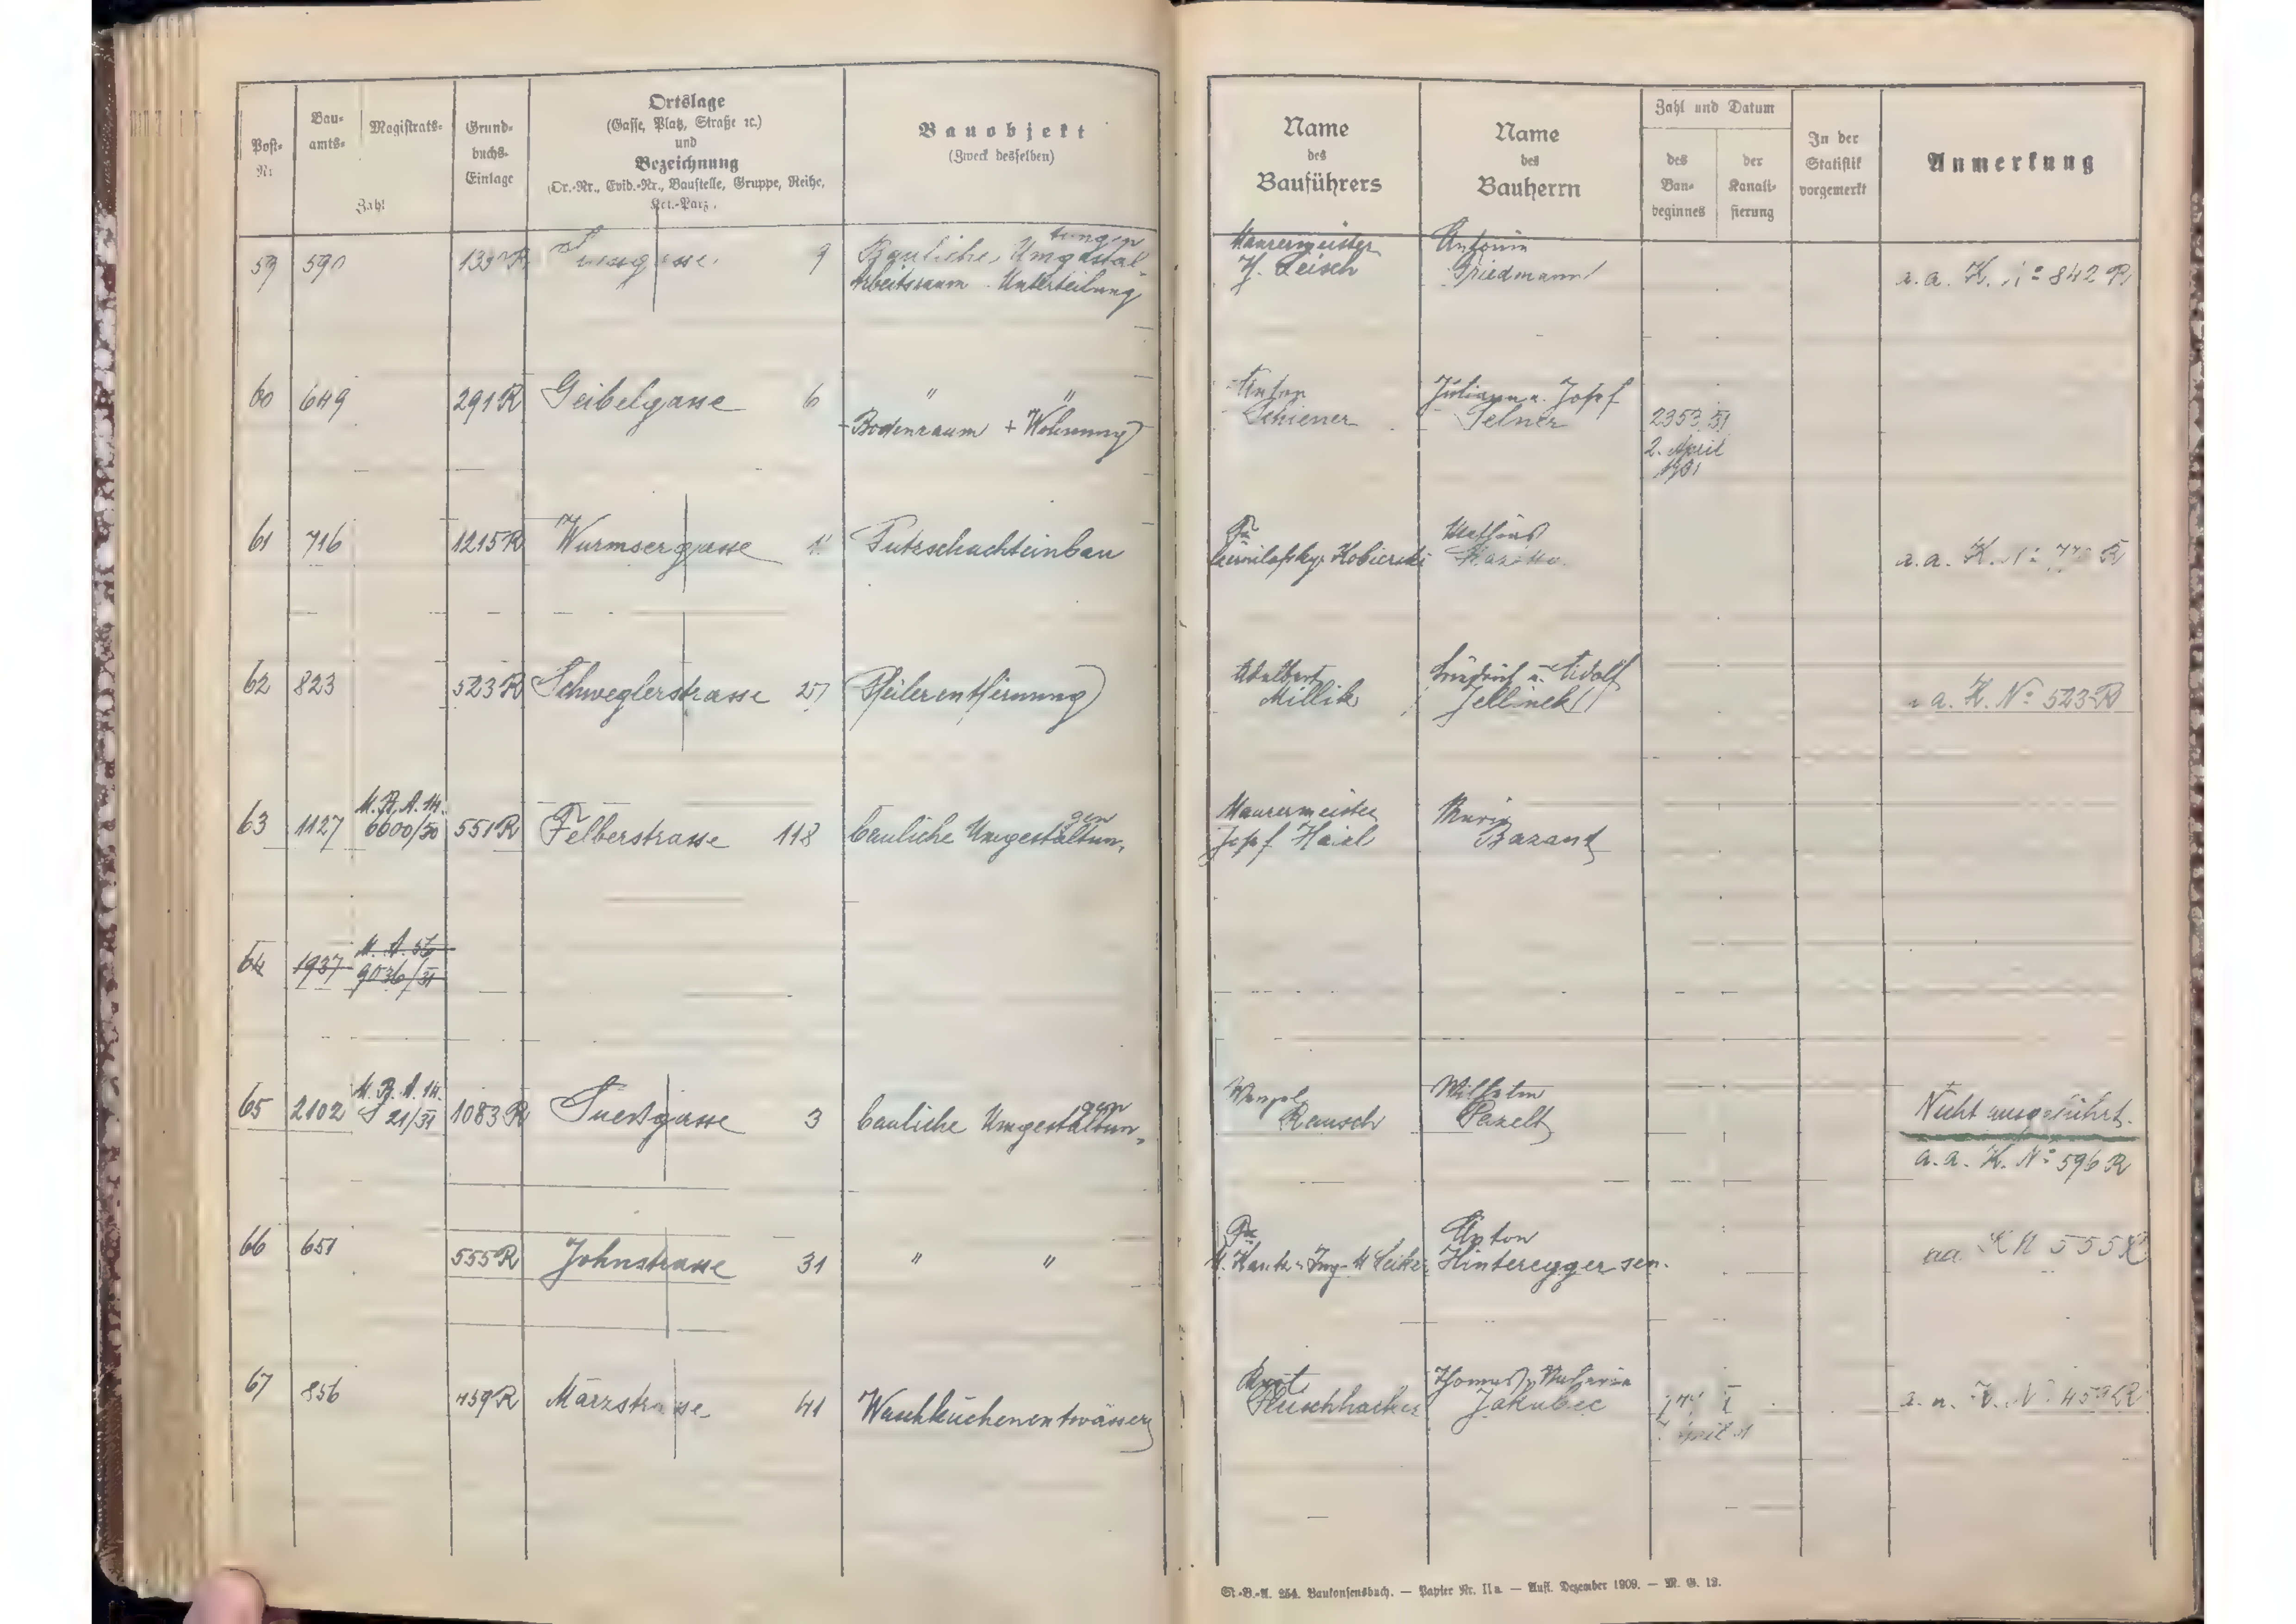 Post-
Nr.
Bau-
amts-
Magistrats-
Zahl
Grund-
buchs-
Einlage
Ortslage
(Gasse, Platz, Straße ꝛc.)
und
Bezeichnung
(Or.-Nr., Evid.-Nr., Baustelle, Gruppe, Reihe,
Kat.-Parz.
Bauobjekt
(Zweck desselben)
Name
des
Bauführers
Name
des
Bauherrn
Zahl und Datum
des
Bau-
beginnes
der
Kanali-
sierung
In der
Statistik
vorgemerkt
Anmerkung
59 590 9 Bauliche Umgestal-
tungen
Arbeitsraum Unterteilung
Maurermeister
Friedmann
a. a. K. N: 842 R
60 649 291 R Geibelgasse 6 " "
Bodenraum + Wohnung
Anton
Schiener
Juliana u. Josef
Selner
2353/31
2. April
1931
61 716 1215 R Wurmsergasse Putzschachteinbau
Fa
Kobierski
a. a. K. N:
62 823 523 R Schweglerstrasse 27 Pfeilerentfernung
Adalbert
Millik
Friedrich u. Adolf
Jellinek
a. K. N: 523 R
63 1127 M. B. A. 14.
6600/30 551 R Felberstrasse 118 bauliche Umgestaltun-
gen
Maurermeister
Josef
Marie
Bazant
64 1937 M. A. 56
9036/31
65 2102 M. B. A. 14.
S 21/31 1083 R Suessgasse 3 bauliche Umgestaltun-
gen
Rausch
Wilhelm
Pazelt
Nicht ausgeführt.
a. a. K. N: 596 R
66 651 555 R Johnstrasse 31 " "
Fa
Anton
Hinteregger sen.
aa. K N 555 R
67 856 459 R Märzstrasse 41 Waschküchenentwässerg
Jakubec
a. a. K. N: 459 R
St.-B.-A. 254. Baukonsensbuch. — Papier Nr. IIa. — Aufl. Dezember 1909. — M. G. 12.